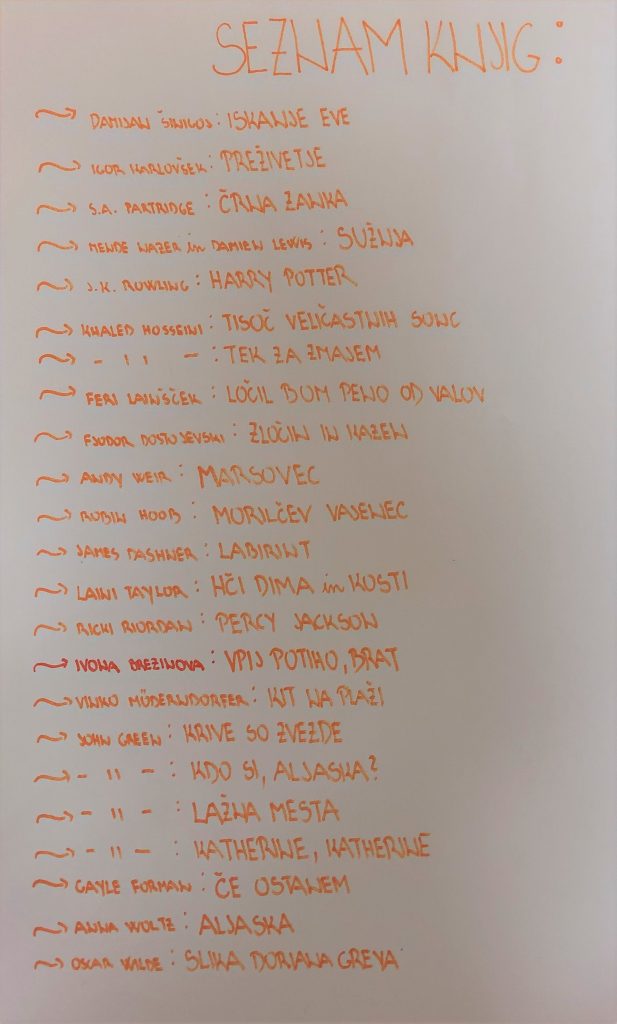 SEZNAM KNJIG:
DAMIJAN ŠINIGOJ: ISKANJE EVE
IGOR KARLOVŠEK: PREŽIVETJE
S.A. PARTRIDGE: ČRNA ZANKA
MENDE NAZER in DAMIEN LEWIS: SUŽNJA
J.K. ROWLING: HARRY POTTER
KHALED HOSSEINI: TISOČ VELIČASTNIH SONC
- '' - : TEK ZA ZMAJEM
FERI LAINŠČEK: LOČIL BOM PENO OD VALOV
FJODOR DOSTOJEVSKI: ZLOČIN IN KAZEN
ANDY WEIR: MARSOVEC
ROBIN HOOB: MORILČEV VAJENEC
JAMES DASHNER: LABIRINT
LAINI TAYLOR: HČI DIMA in KOSTI
RICKI RIORDAN: PERCY JACKSON
IVONA BREZINOVA: VPIJ POTIHO, BRAT
VINKO MÜDERNDORFER: KIT NA PLAŽI
JOHN GREEN: KRIVE SO ZVEZDE
- '' - : KDO SI, ALJASKA?
- '' - : LAŽNA MESTA
- '' - : KATHERINE, KATHERINE
GAYLE FORMAN: ČE OSTANEM
ANNA WOLTZ: ALJASKA
OSCAR WILDE: SLIKA DORIANA GREYA